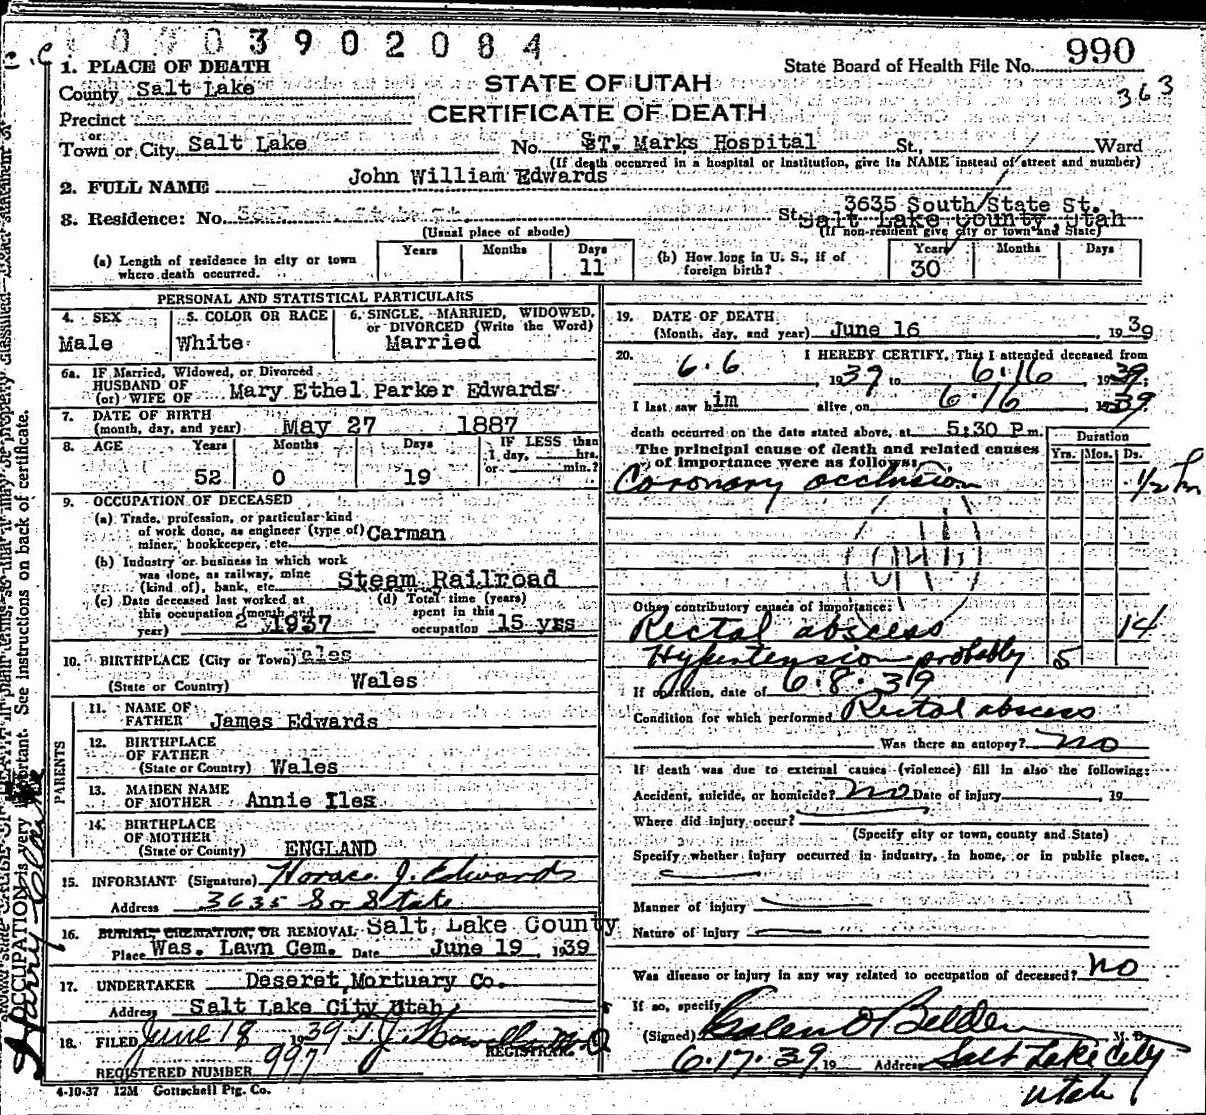 0 7 0 3 9 0 2 0 8 4
C.C
990
State Board of Health File No.
363
1. PLACE OF DEATH
STATE OF UTAH
County Salt Lake
CERTIFICATE OF DEATH
Precinct
or
Town or City Salt Lake No. ST. Marks Hospital St., Ward
(If death occurred in a hospital or institution, give its NAME instead of street and number)
2. FULL NAME John William Edwards
3635 South State St.
3. Residence: No. St. Salt Lake County, Utah
(Usual place of abode) (If non-resident give city or town and State)
Years Months Days
(a) Length of residence in city or town where death occurred. 11
(b) How long in U. S., if of foreign birth? Years 30 Months Days
PERSONAL AND STATISTICAL PARTICULARS
4. SEX 5. COLOR OR RACE 6. SINGLE, MARRIED, WIDOWED, or DIVORCED (Write the Word)
Male White Married
6a. IF Married, Widowed, or Divorced
HUSBAND OF
(or) WIFE OF Mary Ethel Parker Edwards
7. DATE OF BIRTH
(month, day, and year) May 27 1887
8. AGE Years Months Days IF LESS than
1 day, hrs.
or min.?
52 0 19
9. OCCUPATION OF DECEASED
(a) Trade, profession, or particular kind
of work done, as engineer (type of) Carman
miner, bookkeeper, etc.
(b) Industry or business in which work
was done, as railway, mine
(kind of), bank, etc. Steam Railroad
(c) Date deceased last worked at
this occupation (month and
year) 2 1937
(d) Total time (years)
spent in this
occupation 15 yrs
10. BIRTHPLACE (City or Town) Wales
(State or Country) Wales
PARENTS
11. NAME OF
FATHER James Edwards
12. BIRTHPLACE
OF FATHER
(State or Country) Wales
13. MAIDEN NAME
OF MOTHER Annie Iles
14. BIRTHPLACE
OF MOTHER
(State or County) ENGLAND
15. INFORMANT (Signature) Horace J. Edwards
Address 3635 So State
16. BURIAL, CREMATION, OR REMOVAL Salt Lake County
Place Was. Lawn Cem. Date June 19, 1939
17. UNDERTAKER Deseret Mortuary Co.
Address Salt Lake City Utah
18. FILED June 18 1939 T.J. Howells M.D
REGISTRAR.
REGISTERED NUMBER 997
4-10-37 12M Gottschall Ptg. Co.
19. DATE OF DEATH
(Month, day, and year) June 16 1939
20. I HEREBY CERTIFY, That I attended deceased from
6.6, 1937 to 6.16, 1939;
I last saw him alive on 6.16, 1939
death occurred on the date stated above, at 5:30 P m.
The principal cause of death and related causes
of importance were as follows:
Duration
Yrs. Mos. Ds.
Coronary occlusion 1/2 hr
Other contributory causes of importance:
Rectal abscess 14
Hypertension probably 5
If operation, date of 6.8.39
Condition for which performed Rectal abscess
Was there an autopsy? no
If death was due to external causes (violence) fill in also the following:
Accident, suicide, or homicide? no Date of injury, 19
Where did injury occur?
(Specify city or town, county and State)
Specify whether injury occurred in industry, in home, or in public place.
Manner of injury
Nature of injury
Was disease or injury in any way related to occupation of deceased? no
If so, specify
(Signed) Galen O Belden M. D.
6.17.39, 19 Address Salt Lake City
Utah
OCCUPATION is very important. See instructions on back of certificate.